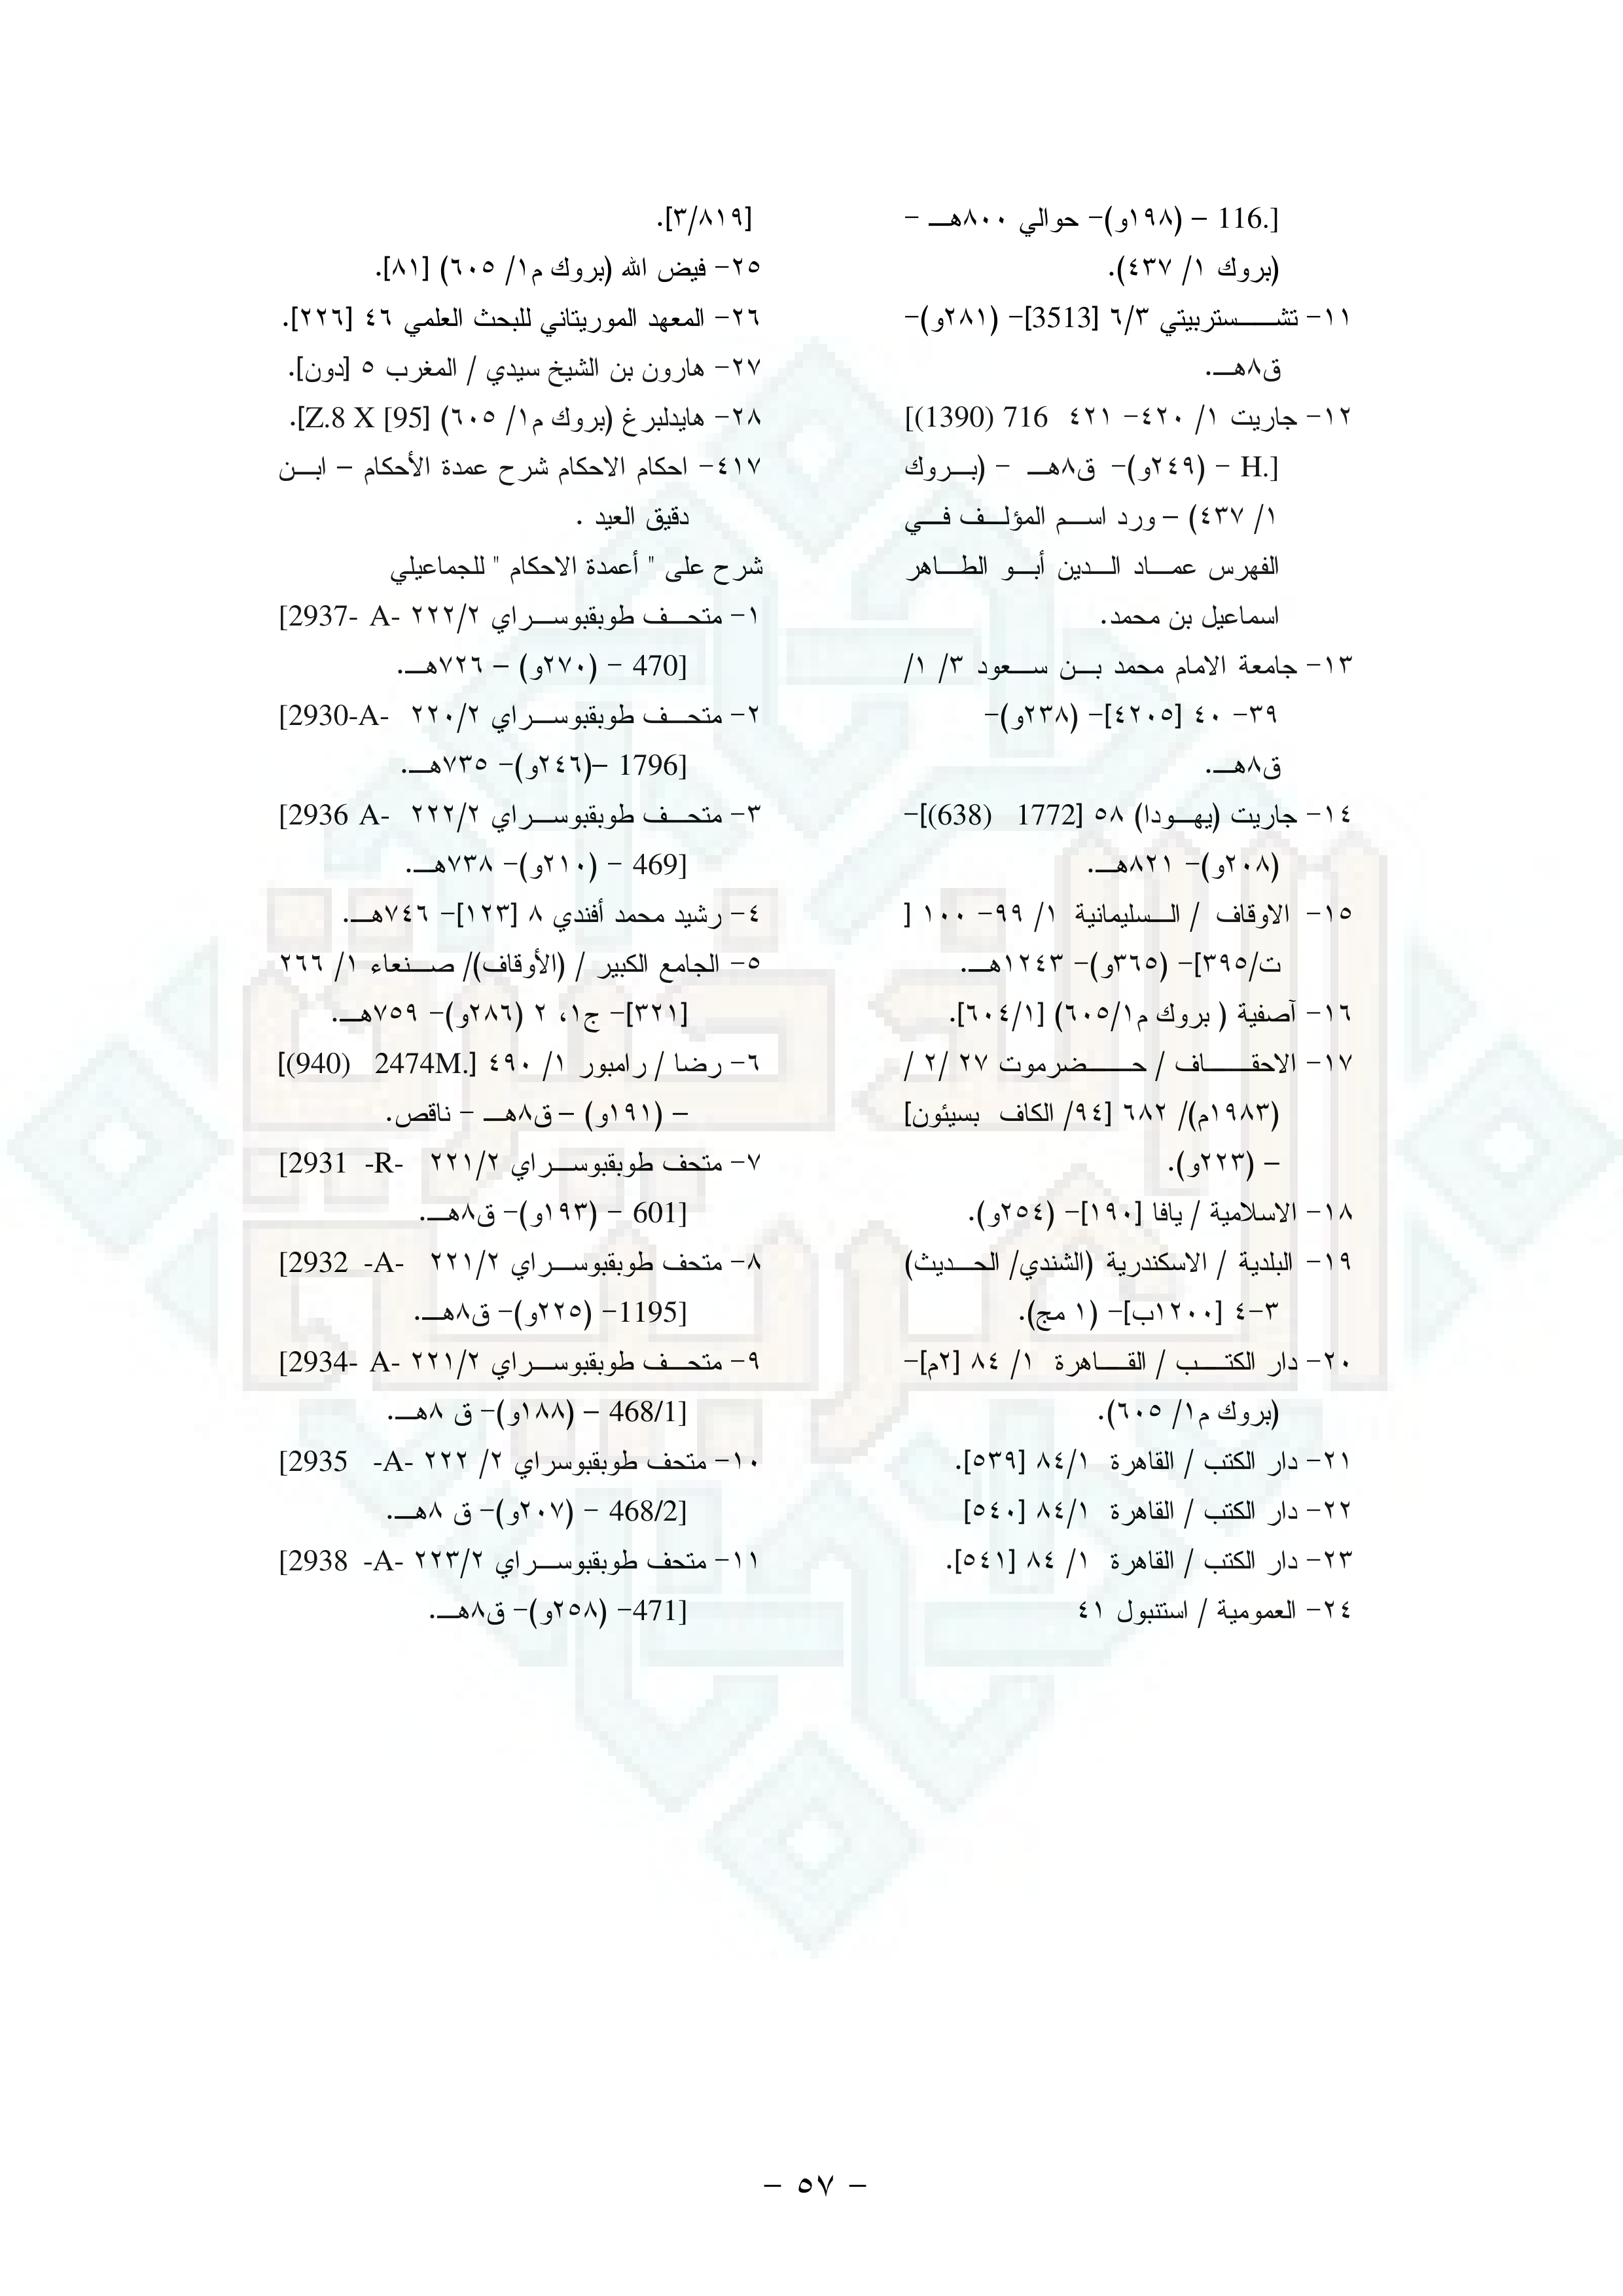 116.] – (١٩٨و)- حوالي ٨٠٠هـ -
(بروك ١/ ٤٣٧).
١١- تشستربيتي ٦/٣ [3513]- (٢٨١و)-
ق٨هـ.
١٢- جاريت ١/ ٤٢٠- ٤٢١ 716 (1390)]
H.] - (٢٤٩و)- ق٨هـ - (بروك
١/ ٤٣٧) – ورد اسم المؤلف في
الفهرس عماد الدين أبو الطاهر
اسماعيل بن محمد.
١٣- جامعة الامام محمد بن سعود ٣/ ١/
٣٩- ٤٠ [٤٢٠٥]- (٢٣٨و)-
ق٨هـ.
١٤- جاريت (يهودا) ٥٨ [1772 (638)]-
(٢٠٨و)- ٨٢١هـ.
١٥- الاوقاف / السليمانية ١/ ٩٩- ١٠٠ [
ت/٣٩٥]- (٣٦٥و)- ١٢٤٣هـ.
١٦- آصفية ( بروك م٦٠٥/١) [٦٠٤/١].
١٧- الاحقاف / حضرموت ٢٧ /٢ /
(١٩٨٣م)/ ٦٨٢ [٩٤/ الكاف بسيئون]
– (٢٢٣و).
١٨- الاسلامية / يافا [١٩٠]- (٢٥٤و).
١٩- البلدية / الاسكندرية (الشندي/ الحديث)
٣-٤ [١٢٠٠ب]- (١ مج).
٢٠- دار الكتب / القاهرة ١/ ٨٤ [٢م]-
(بروك م١/ ٦٠٥).
٢١- دار الكتب / القاهرة ٨٤/١ [٥٣٩].
٢٢- دار الكتب / القاهرة ٨٤/١ [٥٤٠]
٢٣- دار الكتب / القاهرة ١/ ٨٤ [٥٤١].
٢٤- العمومية / استنبول ٤١
[٣/٨١٩].
٢٥- فيض الله (بروك م١/ ٦٠٥) [٨١].
٢٦- المعهد الموريتاني للبحث العلمي ٤٦ [٢٢٦].
٢٧- هارون بن الشيخ سيدي / المغرب ٥ [دون].
٢٨- هايدلبرغ (بروك م١/ ٦٠٥) [Z.8 X [95].
٤١٧- احكام الاحكام شرح عمدة الأحكام – ابن
دقيق العيد .
شرح على " أعمدة الاحكام " للجماعيلي
١- متحف طوبقبوسراي ٢٢٢/٢ [2937- A-
470] - (٢٧٠و) – ٧٢٦هـ.
٢- متحف طوبقبوسراي ٢٢٠/٢ [2930-A-
1796] –(٢٤٦و)- ٧٣٥هـ.
٣- متحف طوبقبوسراي ٢٢٢/٢ [2936 A-
469] - (٢١٠و)- ٧٣٨هـ.
٤- رشيد محمد أفندي ٨ [١٢٣]- ٧٤٦هـ.
٥- الجامع الكبير / (الأوقاف)/ صنعاء ١/ ٢٦٦
[٣٢١]- ج١، ٢ (٢٨٦و)- ٧٥٩هـ.
٦- رضا / رامبور ١/ ٤٩٠ [.2474M (940)]
– (١٩١و) – ق٨هـ - ناقص.
٧- متحف طوبقبوسراي ٢٢١/٢ [2931 -R-
601] - (١٩٣و)- ق٨هـ.
٨- متحف طوبقبوسراي ٢٢١/٢ [2932 -A-
1195]- (٢٢٥و)- ق٨هـ.
٩- متحف طوبقبوسراي ٢٢١/٢ [2934- A-
468/1] – (١٨٨و)- ق ٨هـ.
١٠- متحف طوبقبوسراي ٢/ ٢٢٢ [2935 -A-
468/2] - (٢٠٧و)- ق ٨هـ.
١١- متحف طوبقبوسراي ٢٢٣/٢ [2938 -A-
471]- (٢٥٨و)- ق٨هـ.
- ٥٧ -